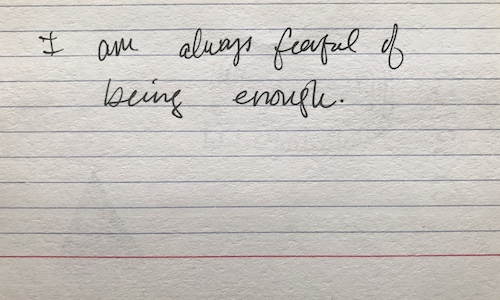 I am always fearful of
being enough.